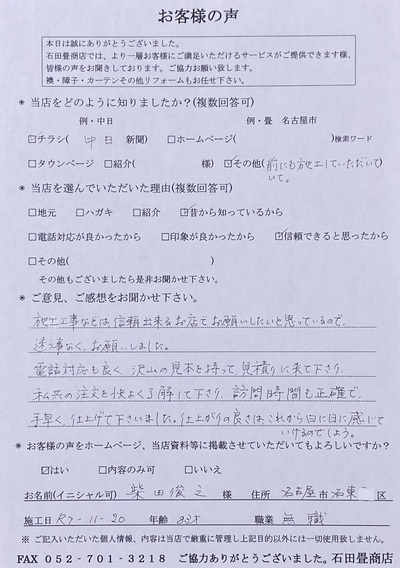 お客様の声
本日は誠にありがとうございました。
石田畳商店では、より一層お客様にご満足いただけるサービスがご提供できます様、
皆様の声をお聞きしております。ご協力お願い致します。
襖・障子・カーテンその他リフォームもお任せ下さい。
※ 当店をどのように知りましたか?(複数回答可)
例・中日 例・畳 名古屋市
☑チラシ( 中日 新聞) □ホームページ( )検索ワード
□タウンページ □紹介( 様) ☑その他(前にも施工していただいて)
いて。
※ 当店を選んでいただいた理由(複数回答可)
□地元 □ハガキ □紹介 ☑昔から知っているから
□電話対応が良かったから □印象が良かったから ☑信頼できると思ったから
□その他( )
その他もございましたら是非お聞かせ下さい。
※ ご意見、ご感想をお聞かせ下さい。
施工工事などは信頼出来るお店でお願いしたいと思っているので、
迷事なく、お願いしました。
電話対応も良く、沢山の見本を持って、見積りに来て下さり、
私共の注文を快よく了解して下さり、訪問時間も正確で、
手早く、仕上げて下さいました。仕上がりの良さは、これから日に日に感じて
いけるのでしょう。
※ お客様の声をホームページ、当店資料等に掲載させていただいてもよろしいですか?
☑はい □内容のみ可 □いいえ
お名前(イニシャル可) 柴田俊之 様 住所 名古屋市名東 区
施工日 R7-11-20 年齢 才 職業 無職
※ ご記入いただいた個人情報、内容は当店で厳重に管理し上記目的以外には一切使用致しません。
FAX 052-701-3218 ご協力ありがとうございました。石田畳商店